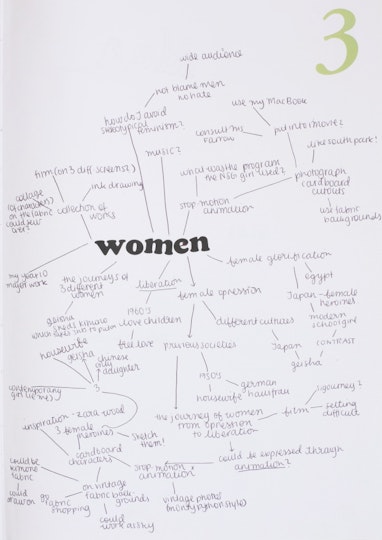 3
wide audience
not blame men
no hate
how do I avoid
stereotypical
feminism?
use my MacBook
MUSIC?
consult Ms
Farrow
put into iMovie?
like south park!
film (on 3 diff screens?)
what was the program
the NSG girl used?
photograph
cardboard
cutouts
ink drawing
collage
on the fabric
could sew
over?
collection of
works
stop motion
animation
use fabric
backgrounds
women
female glorification
my year 10
major work
the journeys of
3 different
women
liberation
egypt
female opression
Japan - female
heroines
geisha
sheds kimono
1960's
love children
modern
schoolgirl
different cultures
housewife
geisha
chinese
only
daughter
free love
previous societies
Japan
CONTRAST
geisha
3
1950's
german
hausfrau
housewife
contemporary
girl (be me)
inspiration - zara wood
3 female
heroines
sketch
them!
the journey of women
from opression
to liberation
film
sigourney?
difficult
cardboard
characters
could be
kimono
fabric
stop motion
animation
could be expressed through
animation?
could
draw on
go
fabric
shopping
on vintage
fabric back-
grounds
vintage photos
(monty python style)
could
work as sky